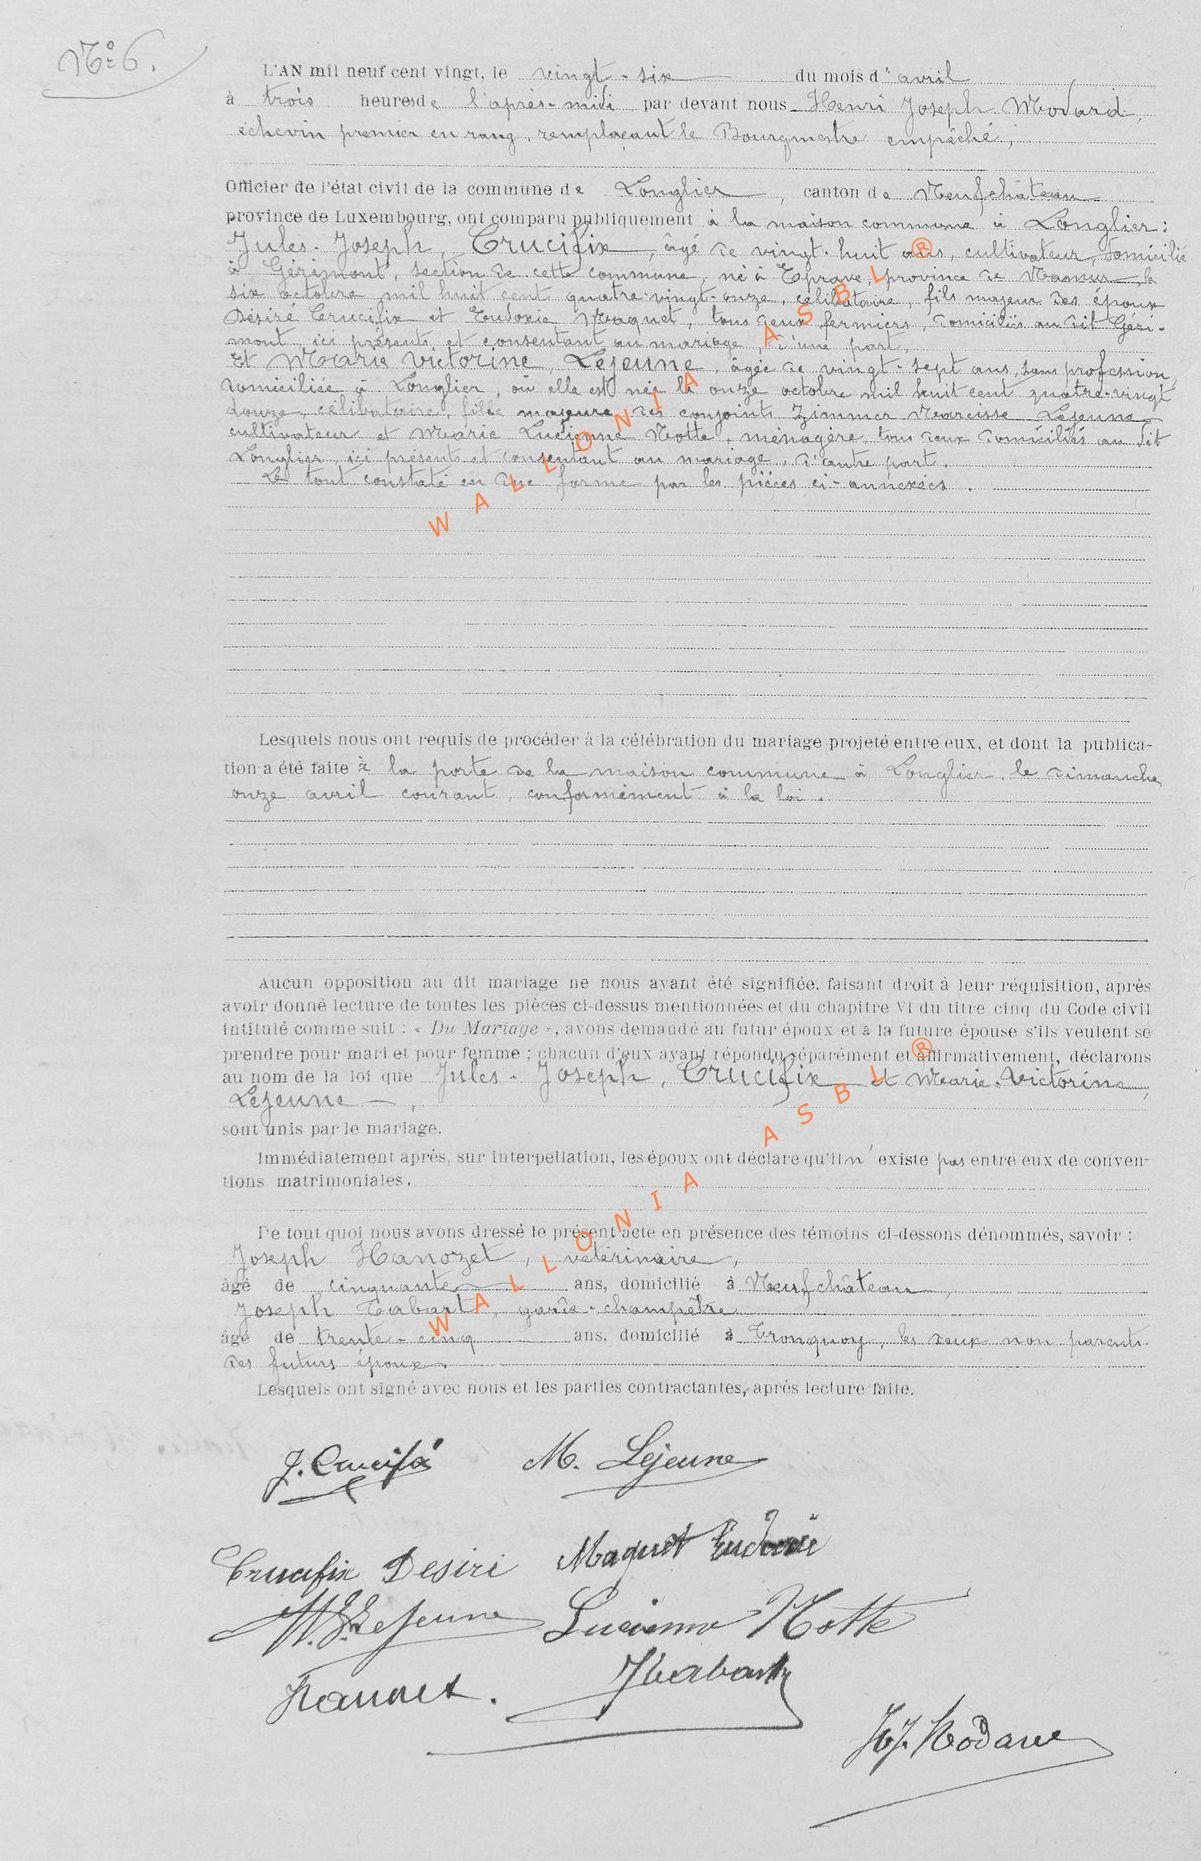 N° 6.
L'AN mil neuf cent vingt, le vingt-six du mois d'avril
à trois heures de l'après-midi par devant nous Henri Joseph Modard,
échevin premier en rang, remplaçant le Bourgmestre empêché,
Officier de l'état civil de la commune de Longlier, canton de Neufchâteau
province de Luxembourg, ont comparu publiquement à la maison commune à Longlier:
Jules-Joseph, Crucifix, âgé de vingt-huit ans, cultivateur, domicilié
à Gérimont, section de cette commune, né à Eprave, province de Namur, le
six octobre mil huit cent quatre-vingt-onze, célibataire, fils majeur des époux
Désiré Crucifix et Eudoxie Maquet, tous deux fermiers, domiciliés au dit Géri-
mont, ici présents et consentant au mariage, d'une part,
Et Marie Victorine, Lejeune, âgée de vingt-sept ans, sans profession,
domiciliée à Longlier, où elle est née le onze octobre mil huit cent quatre-vingt
douze, célibataire, fille majeure des conjoints Zimmer Narcisse Lejeune,
cultivateur et Marie Lucienne Notte, ménagère tous deux domiciliés au dit
Longlier, ici présents et consentant au mariage, d'autre part.
Le tout constaté en due forme par les pièces ci-annexées.
Lesquels nous ont requis de procéder à la célébration du mariage projeté entre eux, et dont la publica-
tion a été faite à la porte de la maison commune à Longlier, le dimanche
onze avril courant, conformément à la loi.
Aucun opposition au dit mariage ne nous ayant été signifiée, faisant droit à leur réquisition, après
avoir donné lecture de toutes les pièces ci-dessus mentionnées et du chapitre VI du titre cinq du Code civil
intitulé comme suit : « Du Mariage », avons demandé au futur époux et à la future épouse s'ils veulent se
prendre pour mari et pour femme ; chacun d'eux ayant répondu séparément et affirmativement, déclarons
au nom de la loi que Jules-Joseph, Crucifix et Marie-Victorine,
Lejeune,
sont unis par le mariage.
Immédiatement après, sur interpellation, les époux ont déclaré qu'il n'existe pas entre eux de conven-
tions matrimoniales.
De tout quoi nous avons dressé le présent acte en présence des témoins ci-dessons dénommés, savoir :
Joseph Hanozet, vétérinaire,
âgé de cinquante ans, domicilié à Neufchâteau,
Joseph Tabart, garde-champêtre
âgé de trente-cinq ans, domicilié à Tronquoy, les deux non parents
des futurs époux.
Lesquels ont signé avec nous et les parties contractantes, après lecture faite.
J. Crucifix M. Lejeune
Crucifix Desiré Maquet Eudoxie
Lejeune Lucienne Notte
WALLONIA ASBL ®
WALLONIA ASBL ®